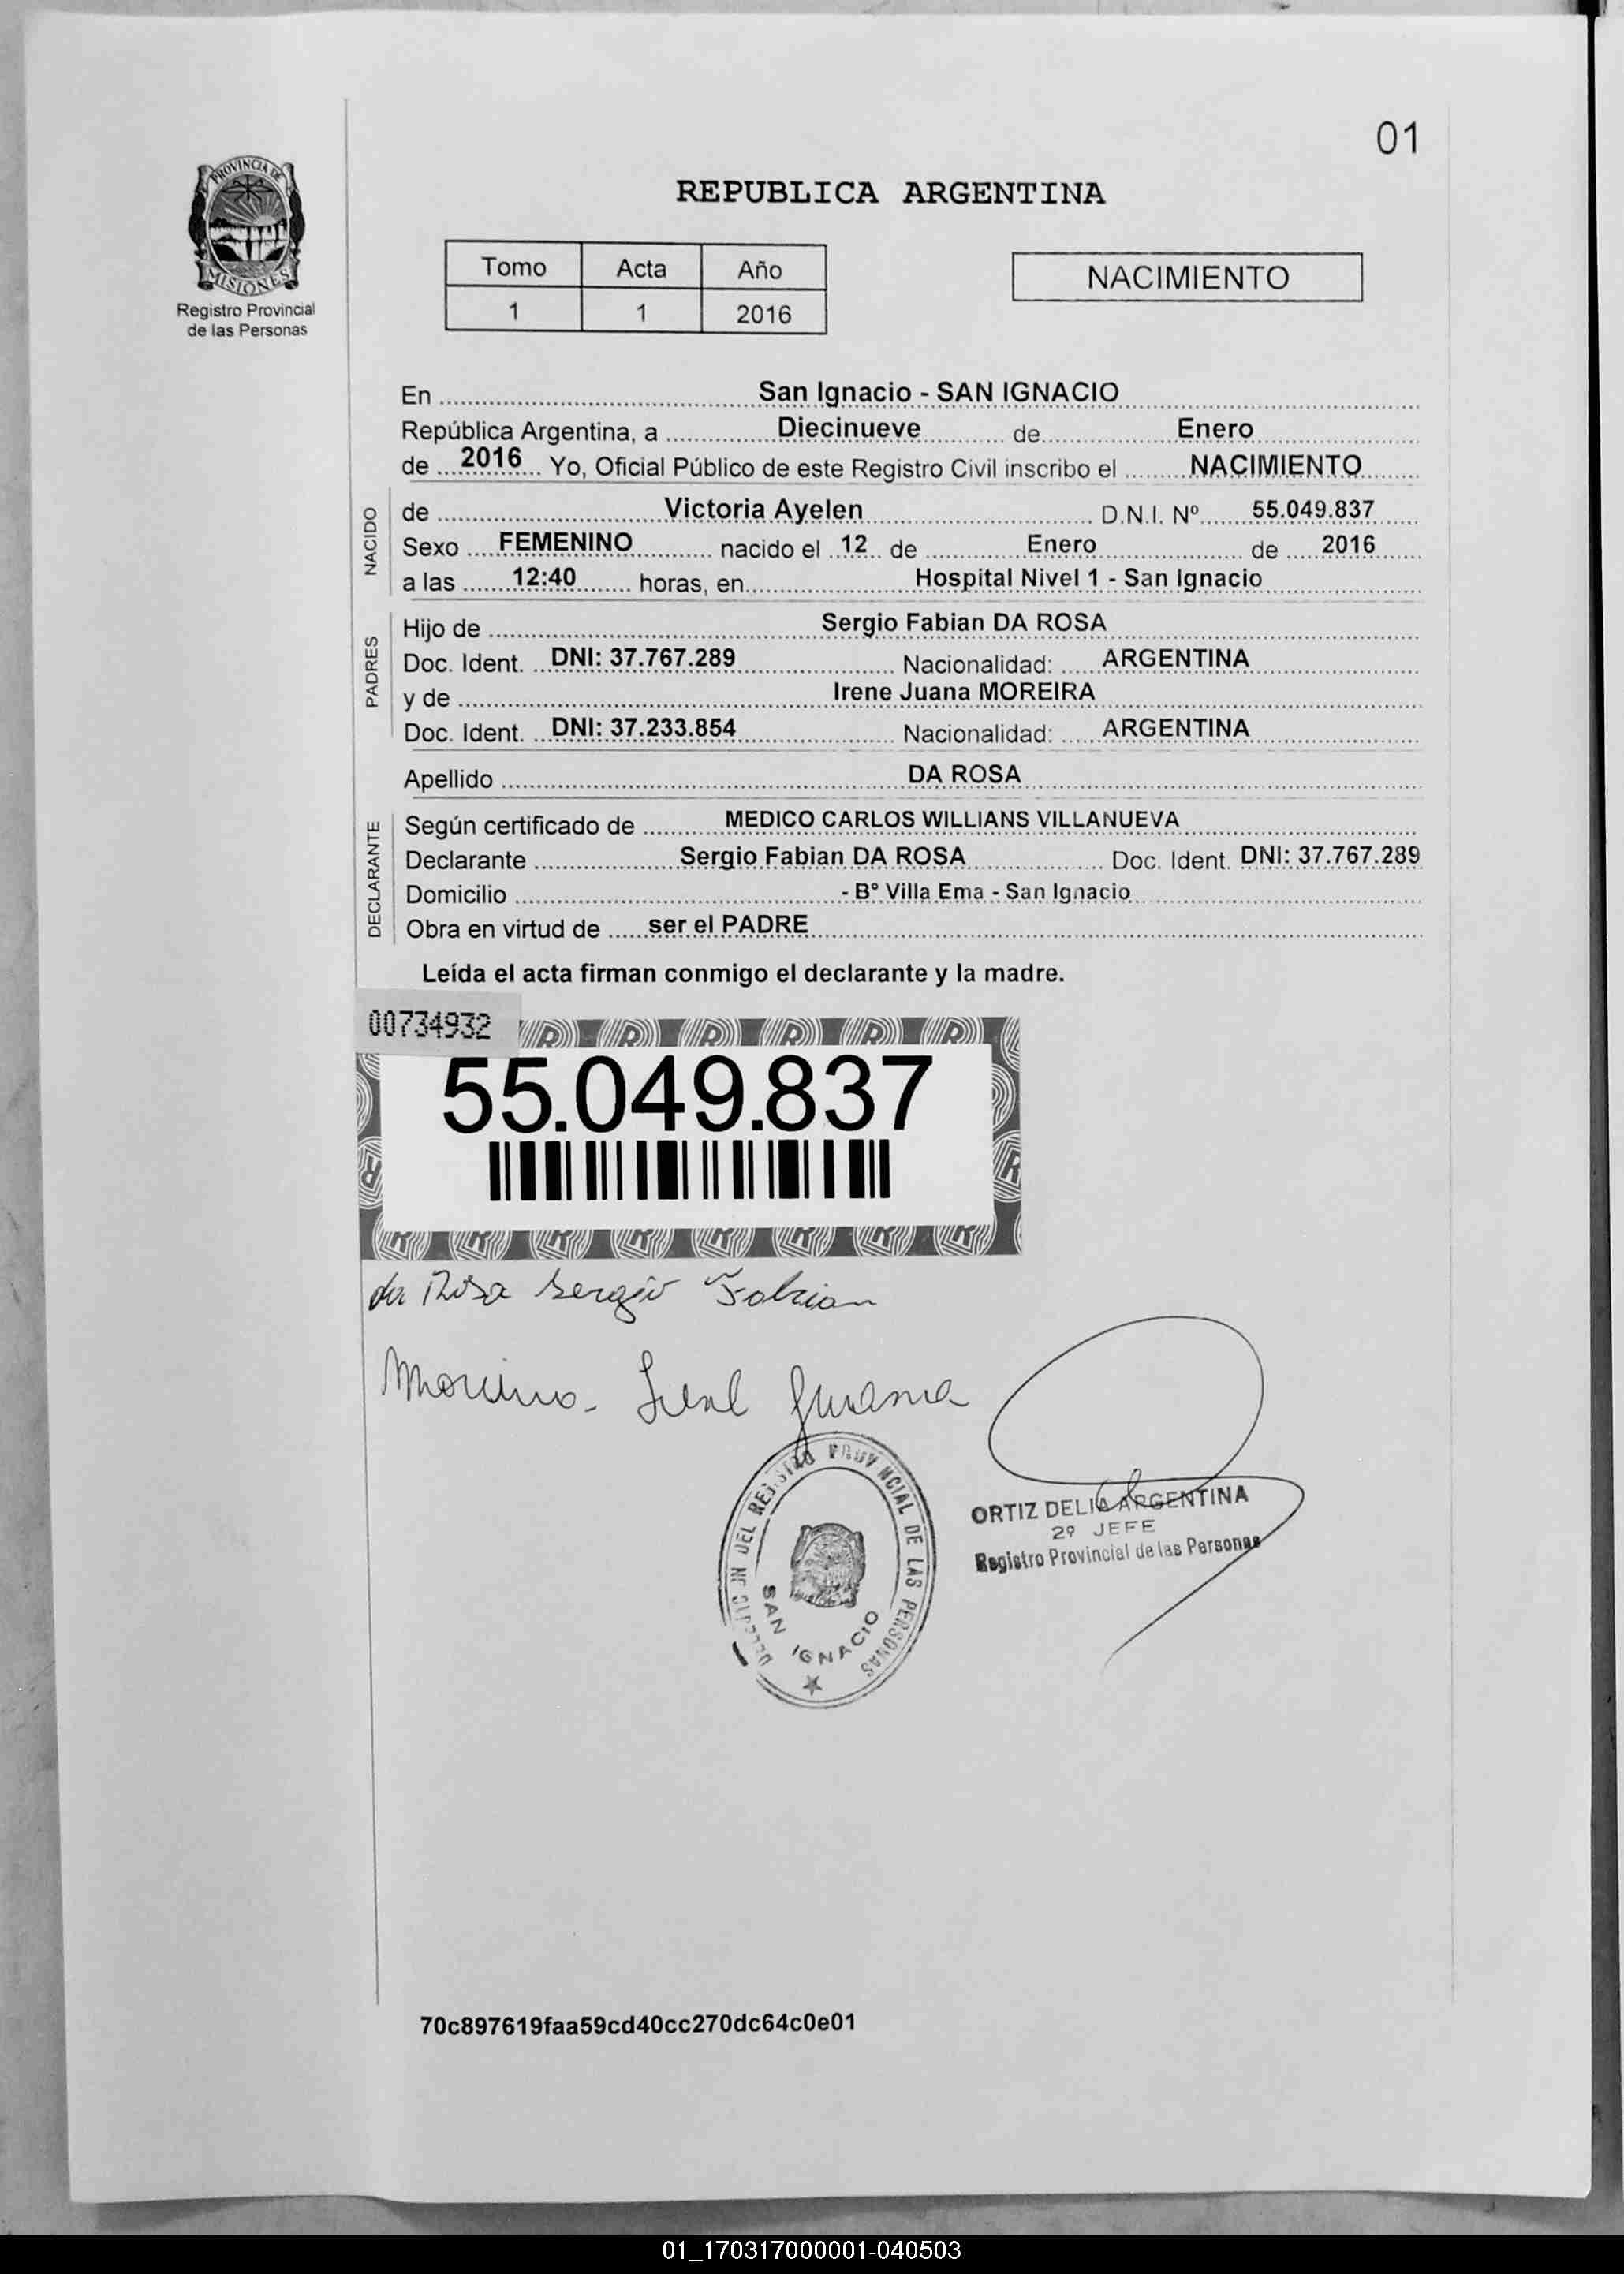 01
PROVINCIA DE
MISIONES
Registro Provincial
de las Personas
REPUBLICA ARGENTINA
Tomo Acta Año
1 1 2016
NACIMIENTO
En San Ignacio - SAN IGNACIO
República Argentina, a Diecinueve de Enero
de 2016 Yo, Oficial Público de este Registro Civil inscribo el NACIMIENTO
NACIDO
de Victoria Ayelen D.N.I. Nº 55.049.837
Sexo FEMENINO nacido el 12 de Enero de 2016
a las 12:40 horas, en Hospital Nivel 1 - San Ignacio
PADRES
Hijo de Sergio Fabian DA ROSA
Doc. Ident. DNI: 37.767.289 Nacionalidad: ARGENTINA
y de Irene Juana MOREIRA
Doc. Ident. DNI: 37.233.854 Nacionalidad: ARGENTINA
Apellido DA ROSA
DECLARANTE
Según certificado de MEDICO CARLOS WILLIANS VILLANUEVA
Declarante Sergio Fabian DA ROSA Doc. Ident. DNI: 37.767.289
Domicilio - Bº Villa Ema - San Ignacio
Obra en virtud de ser el PADRE
Leída el acta firman conmigo el declarante y la madre.
00734932
55.049.837
da Rosa Sergio Fabian
DEL REGISTRO PROVINCIAL DE LAS PERSONAS
SAN IGNACIO
ORTIZ DELIA ARGENTINA
2º JEFE
Registro Provincial de las Personas
70c897619faa59cd40cc270dc64c0e01
01_170317000001-040503